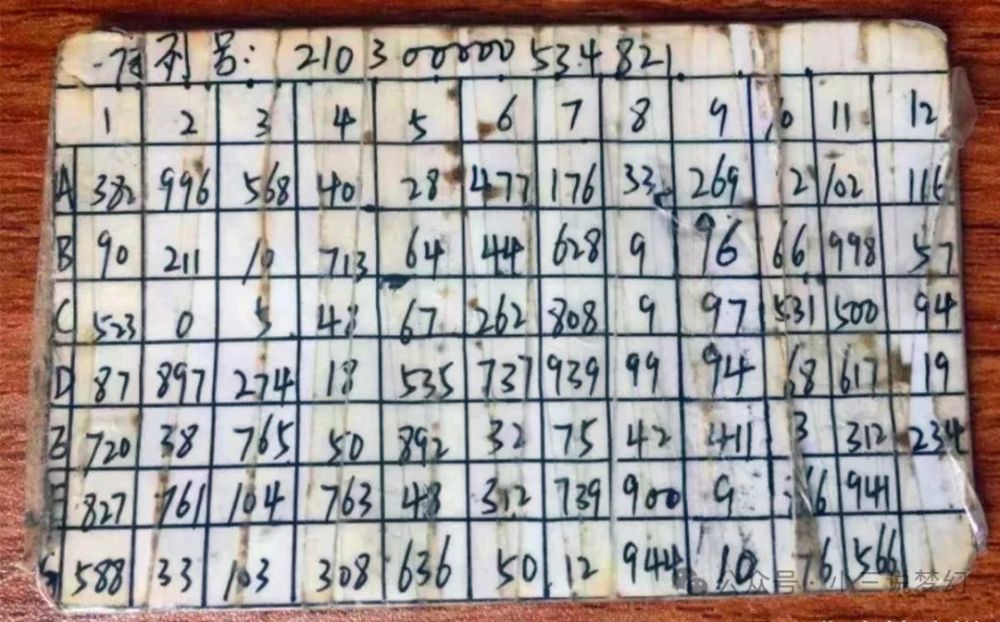 序列号: 210300000534821
1 2 3 4 5 6 7 8 9 10 11 12
A 382 996 568 40 28 477 176 33 269 2 102 116
B 90 211 10 713 64 44 628 9 96 66 998 57
C 523 0 5 48 67 262 808 9 97 531 500 94
D 87 897 274 18 535 737 939 99 94 68 617 19
E 720 38 765 50 892 32 75 42 411 3 312 234
827 761 104 763 48 312 739 900 9 66 941
588 33 103 308 636 50 12 944 10 76 566
公众号·小三说梦幻